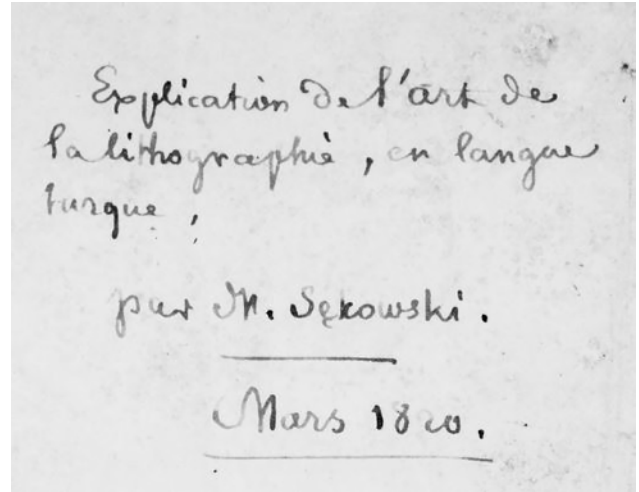 Explication de l'art de
la lithographie, en langue
turque,
par M. Sękowski.
Mars 1820.